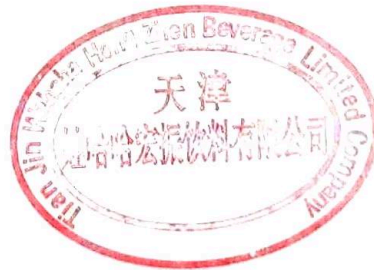 Tian Jin Wahaha Hong Zhen Beverage Limited Company
天津
娃哈哈宏振饮料有限公司